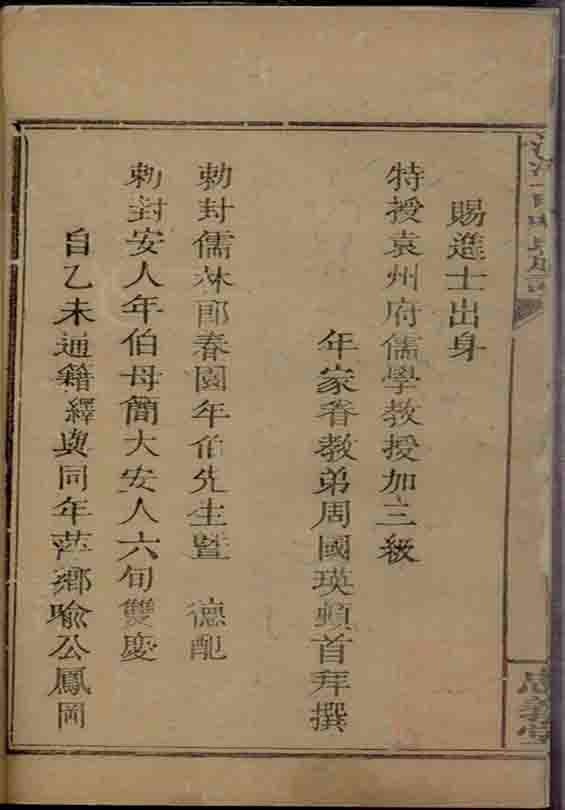 賜進士出身
特授袁州府儒學教授加三級
年家眷教弟周國瑛頓首拜撰
勅封儒林郎春園年伯先生曁 德配
勅封安人年伯母簡大安人六旬雙慶
自乙未通籍繹與同年萍鄉喻公鳳岡
忠義堂